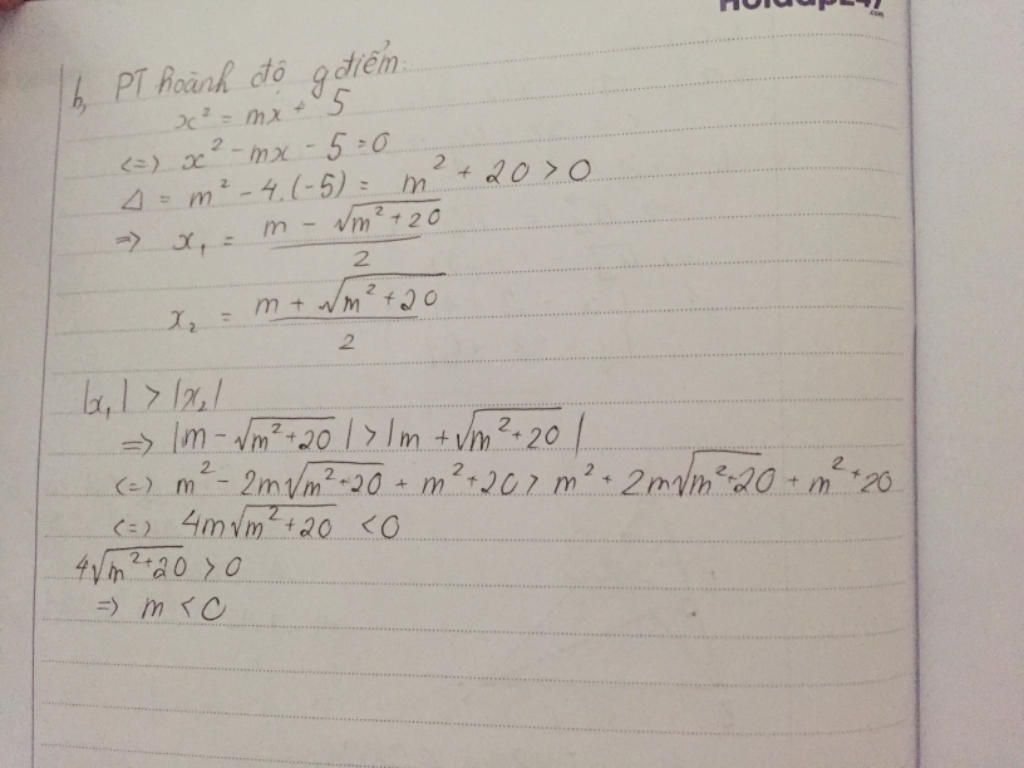 Hoidap247
.com
b, PT hoành độ g điểm:
x² = mx + 5
<=> x² - mx - 5 = 0
Δ = m² - 4.(-5) = m² + 20 > 0
=> x₁ = (m - √(m² + 20))/2
x₂ = (m + √(m² + 20))/2
|x₁| > |x₂|
=> |m - √(m² + 20)| > |m + √(m² + 20)|
<=> m² - 2m√(m² + 20) + m² + 20 > m² + 2m√(m² + 20) + m² + 20
<=> 4m√(m² + 20) < 0
4√(m² + 20) > 0
=> m < 0